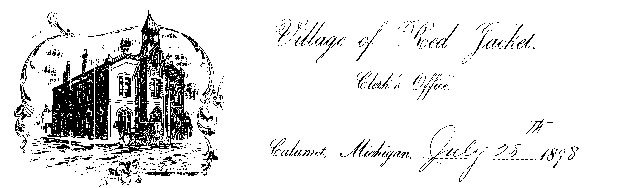 Village of Red Jacket.
Clerk's Office.
Calumet, Michigan, July 25th 1898